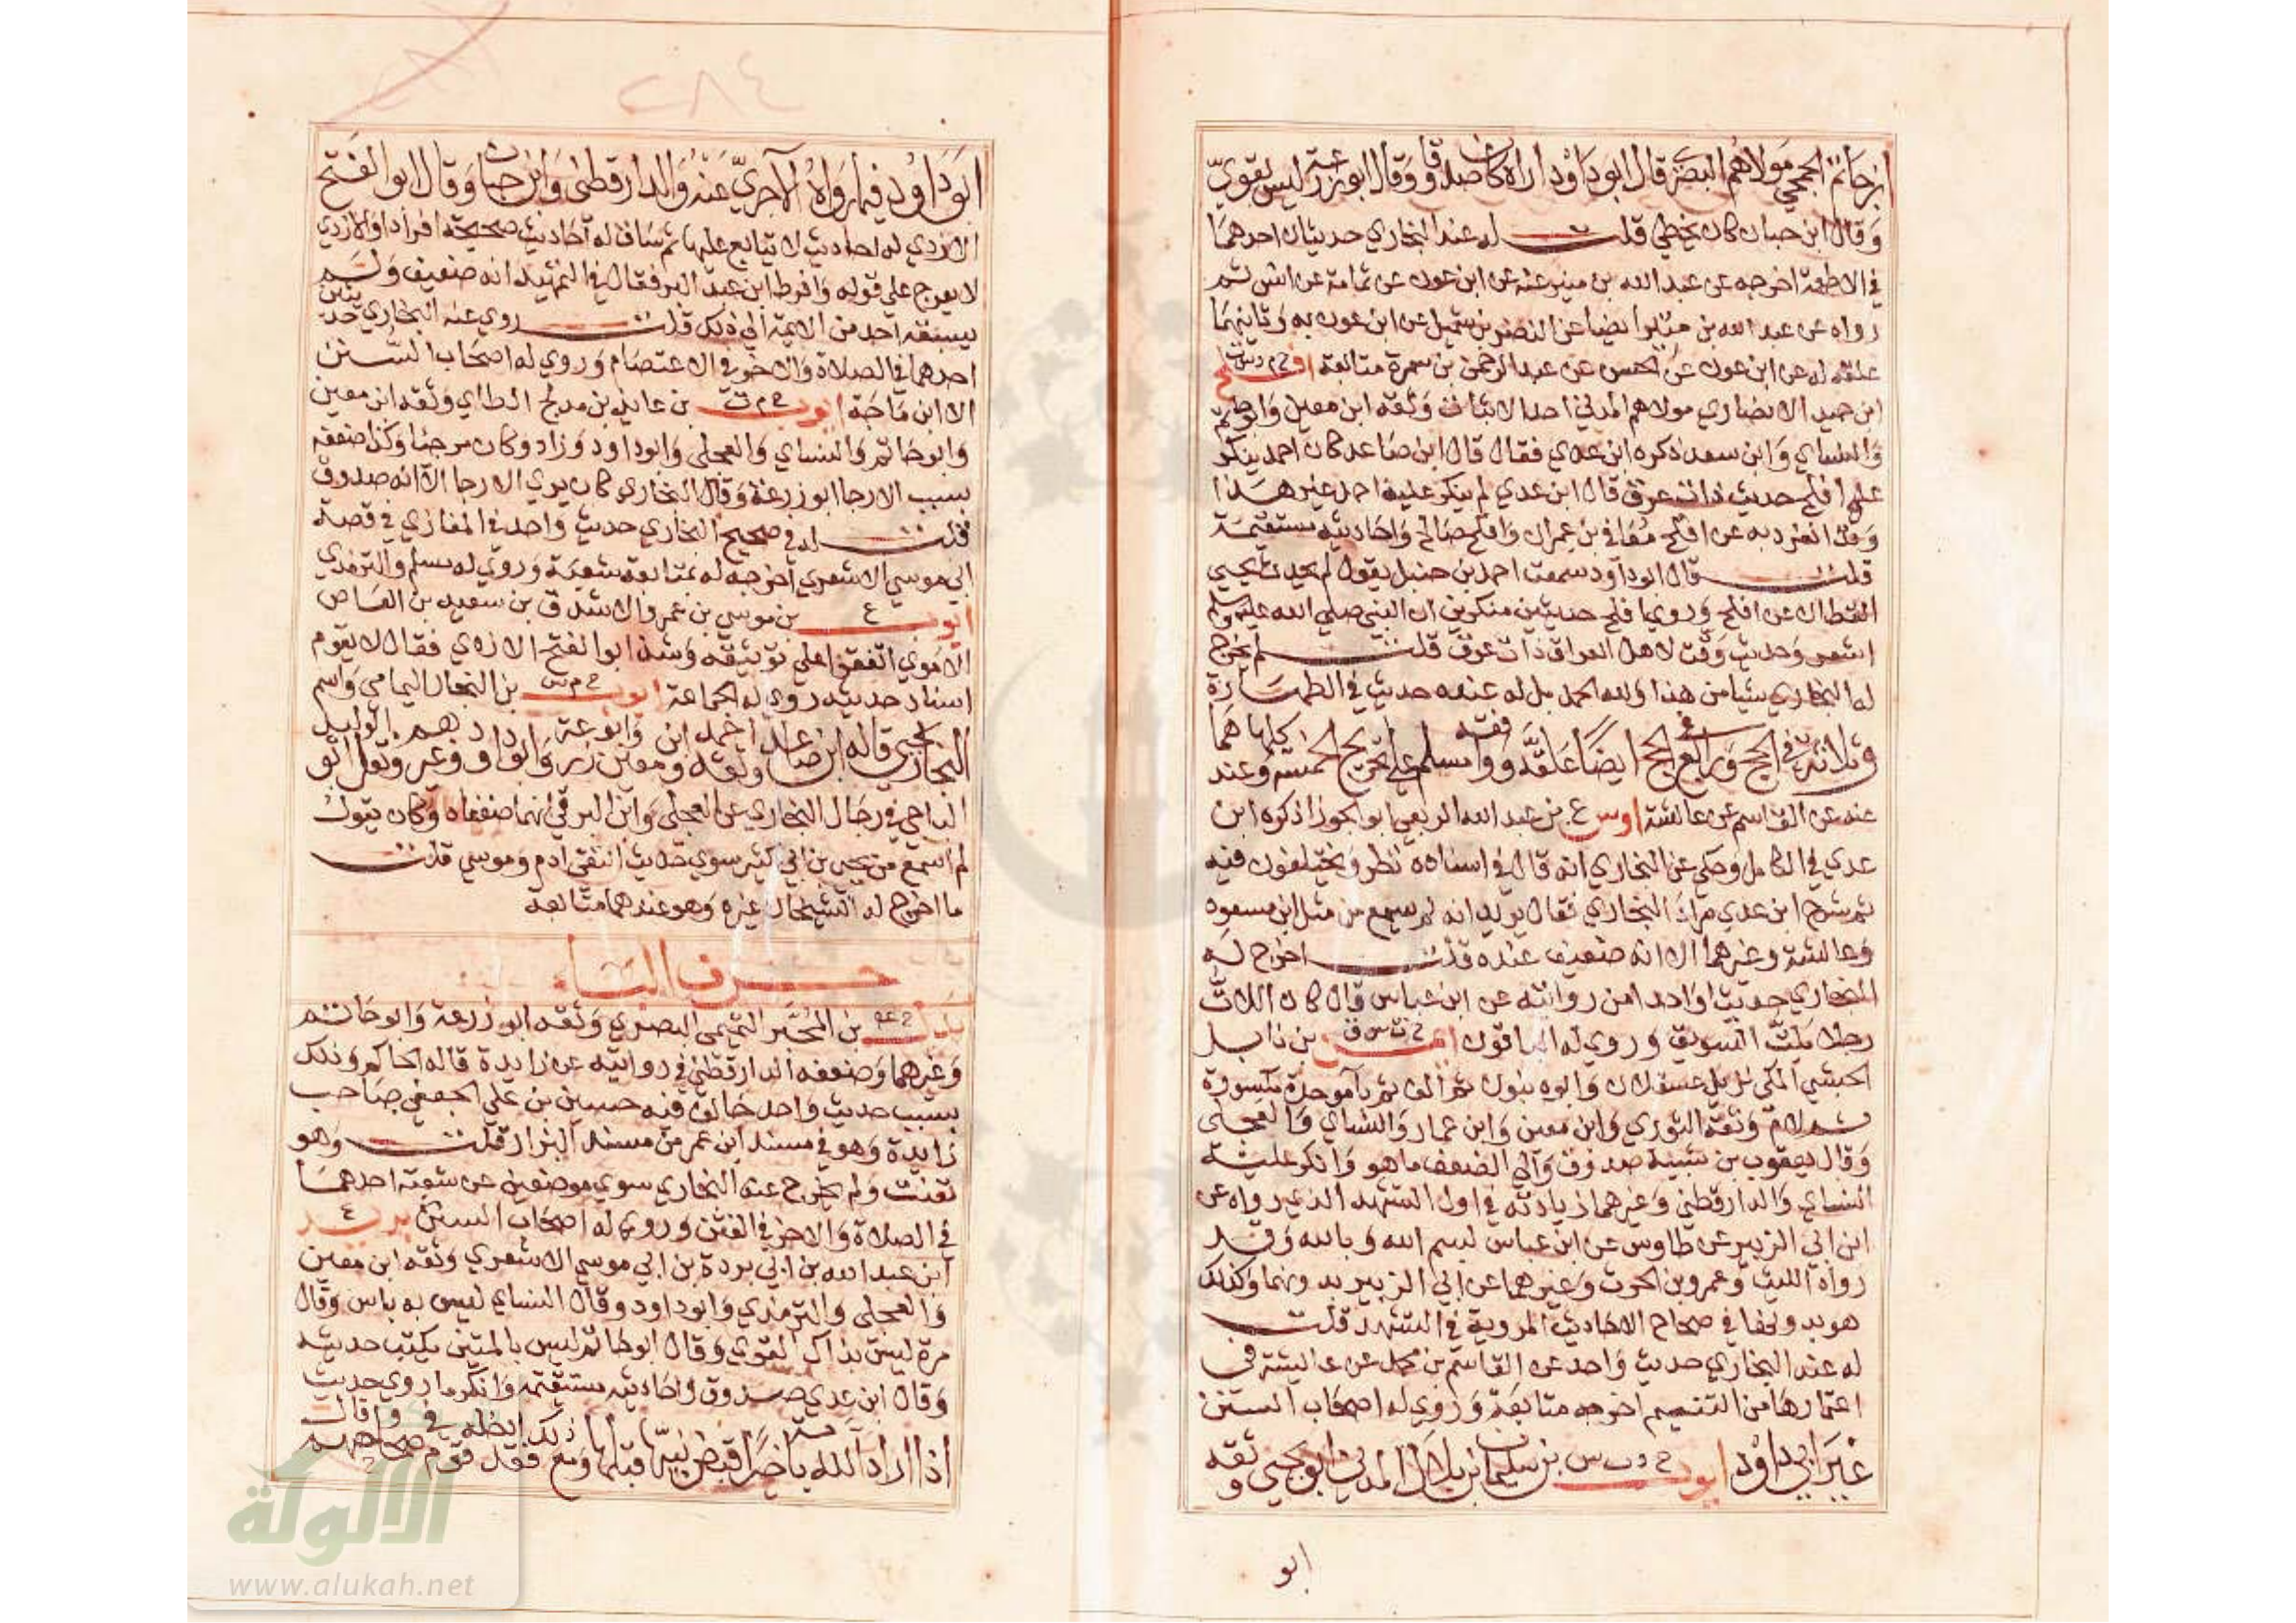 بن حاتم الجمحي مولاهم البصري قال ابو داود اراه كان صدوقا وقال ابو زرعة ليس بقوي
وقال ابن حبان كان يخطي قلت له عند البخاري حديثان احدهما
في الاطعمة اخرجه عن عبد الله بن منير عنه عن ابن عون عن ثمامة عن انس ثم
رواه عن عبد الله بن منير ايضا عن النضر بن شميل عن ابن عون به وثانيهما
علقه له عن ابن عون عن الحسن عن عبد الرحمن بن سمرة متابعة افلح خ م د س ق
ابن حميد الانصاري مولاهم المدني احد الاثبات وثقه ابن معين وابو حاتم
والنساي وابن سعد ذكره ابن عدي فقال قال ابن صاعد كان احمد ينكر
علي افلح حديث ذات عرق قال ابن عدي لم ينكر عليه احمد غير هذا
وقد انفرد به عن افلح معافى بن عمران وافلح صالح واحاديثه مستقيمة
قلت قال ابو داود سمعت احمد بن حنبل يقول لم يحدث يحيي
القطان عن افلح وروي افلح حديثين منكرين ان النبي صلي الله عليه وسلم
اشعر وحديث وقت لاهل العراق ذات عرق قلت لم يخرج
له البخاري شيا من هذا ولله الحمد بل له عنده حديث في الطهارة
وثلاثة في الحج ورابع في الحج ايضا علقه ووافقه مسلم علي تخريج الخمسة وكلها هما عند
عنه عن القاسم عن عائشة اوس ع بن عبد الله الربعي ابو الجوزا ذكره ابن
عدي في الكامل وحكي عن البخاري انه قال في اسناده نظر ويختلفون فيه
ثم شرح ابن عدي مراد البخاري فقال يريد انه لم يسمع من مثل ابن مسعود
وعائشة وغيرهما الا انه ضعيف عنده قلت اخرج له
البخاري حديثا واحدا من روايته عن ابن عباس قال كان اللات
رجلا يلت السويق وروي له الباقون ايمن خ ت س ق بن نابل
الحبشي المكي نزيل عسقلان وابوه بنون ثم الف ثم با موحدة مكسورة
ثم لام وثقه الثوري وابن معين وابن عمار والنساي والعجلي
وقال يعقوب بن شيبة صدوق والي الضعف ما هو وانكر عليه
النساي والدارقطني وغيرهما زيادته في اول التشهد الذي رواه عن
ابن ابي الزبير عن طاوس عن ابن عباس بسم الله وبالله وقد
رواه الليث وعمرو بن الحرث وغيرهما عن ابي الزبير بدونها وكذلك
هو بدونها في صحاح الاحاديث المروية في التشهد قلت
له عند البخاري حديث واحد عن القاسم بن محمد عن عائشة في
اعتمارها من التنعيم اخرجه متابعة وروي له اصحاب السنن
غير ابي داود ايوب خ د ت س بن سليمان بن بلال المدني ابو يحيي وثقه
ابو
٢٨٤
ابو داود فيما رواه الآجري عنه والدارقطني وابن حبان وقال ابو الفتح
الازدي له احاديث لا يتابع عليها ثم ساق له احاديث صحيحة افرادا والازدي
لا يعرج علي قوله وافرط ابن عبد البر فقال في التمهيد انه ضعيف ولم
يسبقه احد من الايمة الي ذلك قلت روي عنه البخاري حديثين
احدهما في الصلاة والاخر في الاعتصام وروي له اصحاب السنن
الا ابن ماجة ايوب خ م ت بن عايذ بن مدلج الطاي وثقه ابن معين
وابو حاتم والنساي والعجلي وابو داود وزاد وكان مرجيا وكذا ضعفه
بسبب الارجا ابو زرعة وقال البخاري كان يري الارجا الا انه صدوق
قلت له في صحيح البخاري حديث واحد في المغازي في قصة
ابي موسي الاشعري اخرجه له بمتابعة شعبة وروي له مسلم والترمذي
ايوب ع بن موسي بن عمرو الاشدق بن سعيد بن العاص
الاموي اتفقوا علي توثيقه وشذ ابو الفتح الازدي فقال لا يقوم
اسناد حديثه روي له الجماعة ايوب خ م س بن النجار اليمامي واسم
النجار يحيي قاله ابن صاعد وثقه احمد وابن معين وابو زرعة وابو داود وغيرهم ونقل ابو الوليد
الباجي في رجال البخاري عن العجلي وابن البرقي انهما ضعفاه وكان يقول
لم اسمع من يحيي بن ابي كثير سوي حديث التقي ادم وموسي قلت
ما اخرج له الشيخان غيره وهو عندهما متابعة
حرف الباء
بدل خ عه بن المحبر التميمي البصري وثقه ابو زرعة وابو حاتم
وغيرهما وضعفه الدارقطني في روايته عن زايدة قاله الحاكم وذلك
بسبب حديث واحد خالف فيه حسين بن علي الجعفي صاحب
زايدة وهو في مسند ابن عمر من مسند البزار قلت وهو
تعنت ولم يخرج عنه البخاري سوي موضعين عن شعبة احدهما
في الصلاة والاخر في الفتن وروي له اصحاب السنن بريد ع
ابن عبد الله بن ابي بردة بن ابي موسي الاشعري وثقه ابن معين
والعجلي والترمذي وابو داود وقال النساي ليس به باس وقال
مرة ليس بذاك القوي وقال ابو حاتم ليس بالمتين يكتب حديثه
وقال ابن عدي صدوق واحاديثه مستقيمة وانكر ما روي حديث
اذا اراد الله بامة خيرا قبض نبيها قبلها قال ومع ذلك فقد ادخله قوم في صحاحهم
الالوكة
www.alukah.net